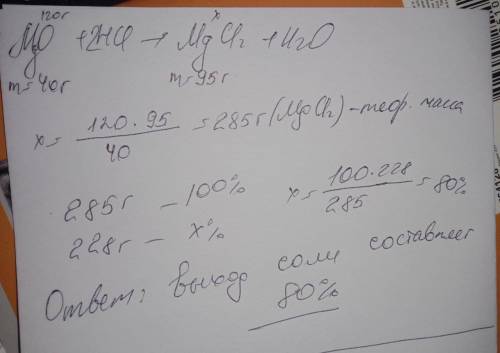 120г x
MgO + 2HCl → MgCl2 + H2O
m=40г m=95г
x= 120·95 / 40 = 285г (MgCl2) - теор. масса
285г - 100%
228г - x%
x= 100·228 / 285 = 80%
Ответ: выход соли составляет
80%